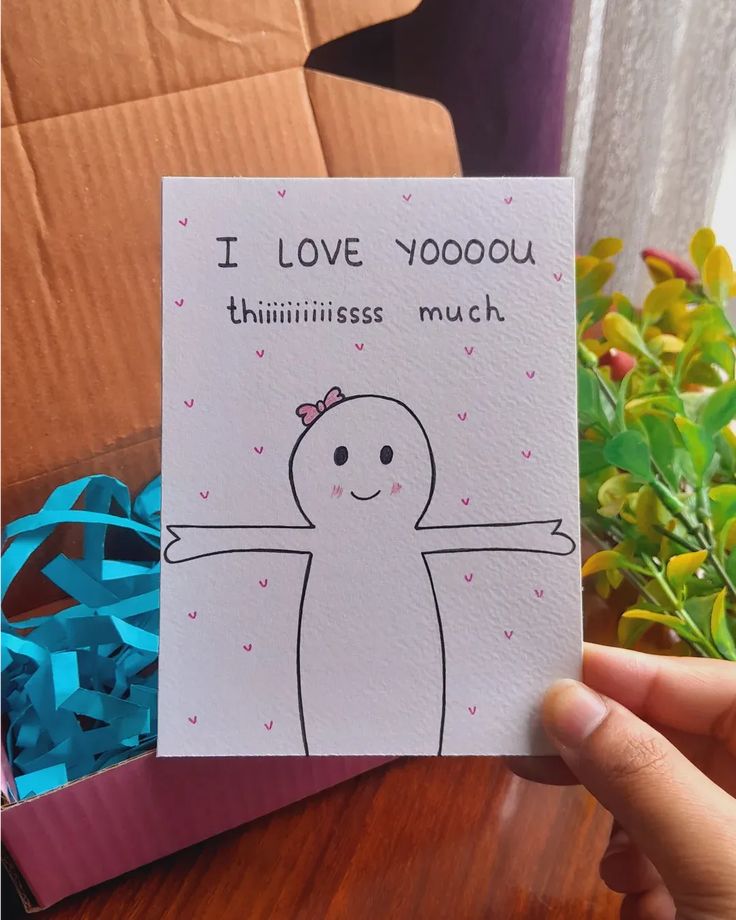 I LOVE YOOOOU
thiiiiiiiiiissss much